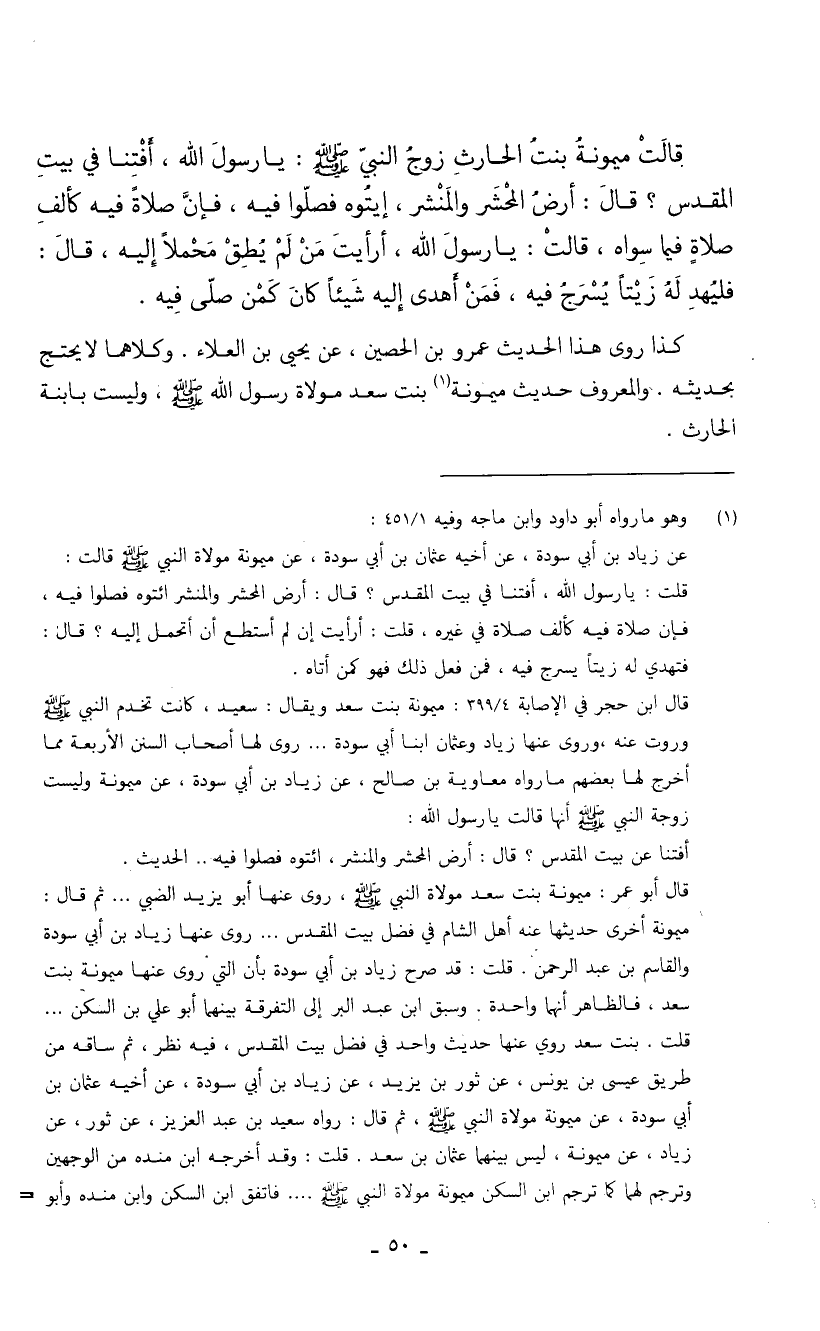 قالَتْ ميمونةُ بنتُ الحارثِ زوجُ النبيّ ﷺ : يارسولَ الله ، أَفْتِنا في بيتِ
المقدس ؟ قالَ : أرضُ المحْشَر والمَنْشر ، إيتُوه فصلّوا فيه ، فإنَّ صلاةً فيه كألفِ
صلاةٍ فيما سِواه ، قالتْ : يارسولَ الله ، أرأيتَ مَنْ لَمْ يُطِقْ مَحْملاً إليه ، قالَ :
فليُهدِ لَهُ زَيْتاً يُسْرَجُ فيه ، فَمَنْ أهدى إليه شيئاً كانَ كَمْن صلّى فيه .
كذا روى هذا الحديث عمرو بن الحصين ، عن يحيى بن العلاء . وكلاهما لايحتج
بحديثه . والمعروف حديث ميمونة(١) بنت سعد مولاة رسول الله ﷺ ، وليست بابنة
الحارث .
(١) وهو مارواه أبو داود وابن ماجه وفيه ٤٥١/١ :
عن زياد بن أبي سودة ، عن أخيه عثمان بن أبي سودة ، عن ميمونة مولاة النبي ﷺ قالت :
قلت : يارسول الله ، أفتنا في بيت المقدس ؟ قال : أرض المحشر والمنشر ائتوه فصلوا فيه ،
فإن صلاة فيه كألف صلاة في غيره ، قلت : أرأيت إن لم أستطع أن أتحمل إليه ؟ قال :
فتهدي له زيتاً يسرج فيه ، فمن فعل ذلك فهو كمن أتاه .
قال ابن حجر في الإصابة ٣٩٩/٤ : ميمونة بنت سعد ويقال : سعيد ، كانت تخدم النبي ﷺ
وروت عنه ،وروى عنها زياد وعثمان ابنا أبي سودة ... روى لها أصحاب السنن الأربعة مما
أخرج لها بعضهم مارواه معاوية بن صالح ، عن زياد بن أبي سودة ، عن ميمونة وليست
زوجة النبي ﷺ أنها قالت يارسول الله :
أفتنا عن بيت المقدس ؟ قال : أرض المحشر والمنشر ، ائتوه فصلوا فيه .. الحديث .
قال أبو عمر : ميمونة بنت سعد مولاة النبي ﷺ ، روى عنها أبو يزيد الضبي ... ثم قال :
ميمونة أخرى حديثها عنه أهل الشام في فضل بيت المقدس ... روى عنها زياد بن أبي سودة
والقاسم بن عبد الرحمن . قلت : قد صرح زياد بن أبي سودة بأن التي روى عنها ميمونة بنت
سعد ، فالظاهر أنها واحدة . وسبق ابن عبد البر إلى التفرقة بينهما أبو علي بن السكن ...
قلت . بنت سعد روي عنها حديث واحد في فضل بيت المقدس ، فيه نظر ، ثم ساقه من
طريق عيسى بن يونس ، عن ثور بن يزيد ، عن زياد بن أبي سودة ، عن أخيه عثمان بن
أبي سودة ، عن ميمونة مولاة النبي ﷺ ، ثم قال : رواه سعيد بن عبد العزيز ، عن ثور ، عن
زياد ، عن ميمونة ، ليس بينهما عثمان بن سعد . قلت : وقد أخرجه ابن منده من الوجهين
وترجم لهما كما ترجم ابن السكن ميمونة مولاة النبي ﷺ .... فاتفق ابن السكن وابن منده وأبو =
ـ ٥٠ ـ